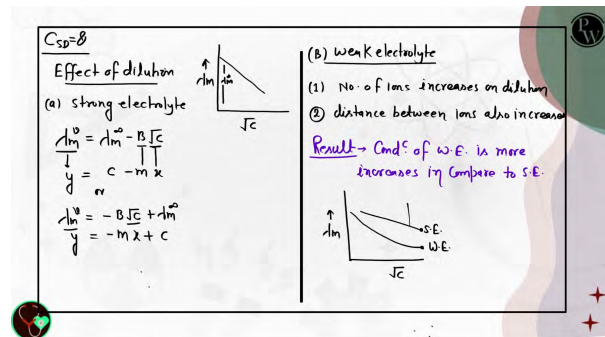 CSD=8
Effect of dilution
(a) strong electrolyte
λm^v = λm^∞ - B√c
y = c - m x
or
λm^v = - B√c + λm^∞
y = - m x + c
↑
λm
λm^∞
√c
(B) weak electrolyte
(1) No. of Ions increases on dilution
② distance between Ions also increases
Result → Cond^c. of W.E. is more
increases in Compare to S.E.
↑
λm
S.E.
W.E.
√c
PW